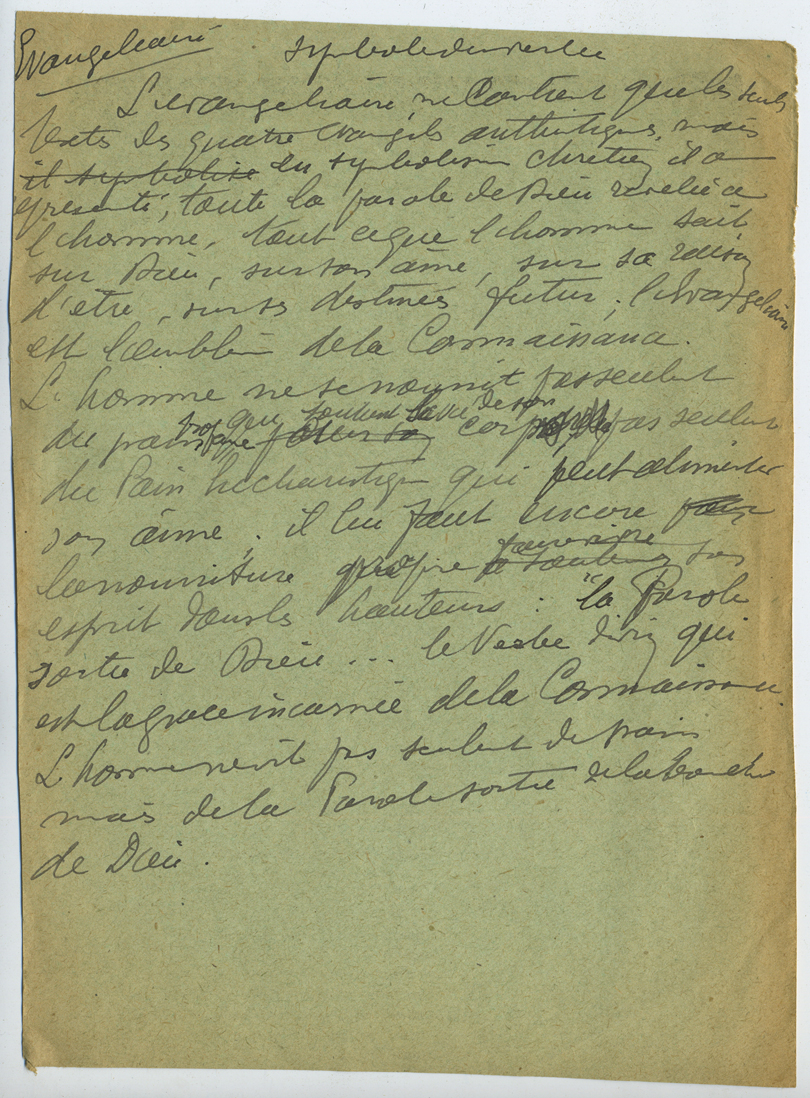 Evangeliaire symbole du verbe
L'evangeliaire, ne Contient que les seuls
texts des quatre Evangils authentiques, mais
il symbolise du symbolism chretien il a
représenté, toute la parole de Dieu revelée a
l'homme, tout ce que l'homme sait
sur Dieu, sur son âme, sur sa raison
d'etre, sur ses destinées futur. l'Evangeliaire
est l'emblem de la Connaissance.
L'homme ne se nourrit pas seulent
que soutient la vie de son
du pain corps pas seulent
du Pain Eucharistique qui peut alimenter
son âme; il lui faut encore pour
la nourriture propre a soutenir son
esprit dans les hauteurs: "la Parole
sortie de Dieu... le Verbe divin qui
est la grace incarnée de la Connaissance
L'homme ne vit pas seulent de pain
mais de la Parole sortie de la bouche
de Dieu.